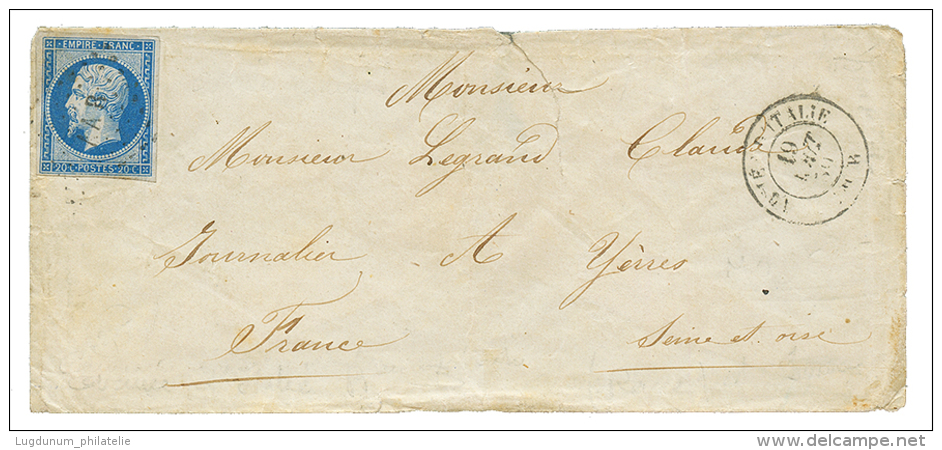 EMPIRE·FRANC·
20·C·POSTES·20·C
Monsieur
Monsieur Legrand Claude
Journalier A Yèrres
France Seine et oise
ITALIE
19
Lugdunum_philatelie
delcampe.net